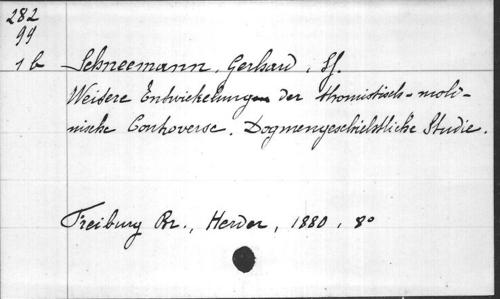 282
99
1 b Schneemann, Gerhard, SJ.
Weitere Entwickelung der thomistisch-moli-
nische Controverse. Dogmengeschichtliche Studie.
Freiburg Br., Herder, 1880, 8°